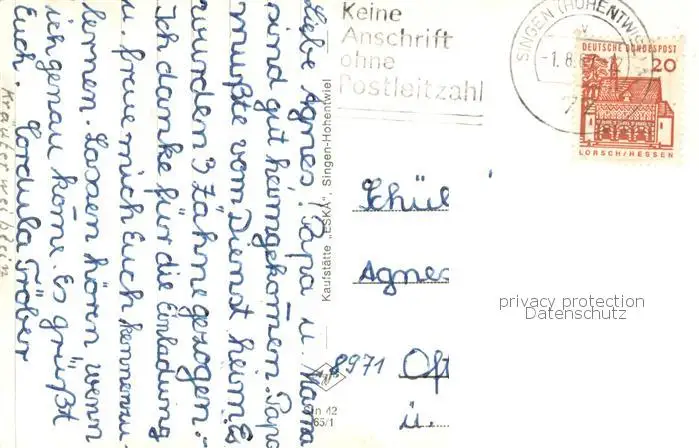 Liebe Agnes! Papa u. Mama
sind gut heimgekommen. Papa
mußte vom Dienst heim. Es
wurden 3 Zähne gezogen.
Ich danke für die Einladung
u. freue mich Euch kennenzu-
lernen. Lassen hören wenn
ich genau kome. Es grüßt
Euch. Cordula Tröber
Kräuterweiblein
Kaufstätte „ESKA", Singen-Hohentwiel
Keine
Anschrift
ohne
Postleitzahl
SINGEN (HOHENTWIEL)
DEUTSCHE BUNDESPOST
20
LORSCH/HESSEN
Schül
Agnes
8971 Oft
ü.
privacy protection
Datenschutz